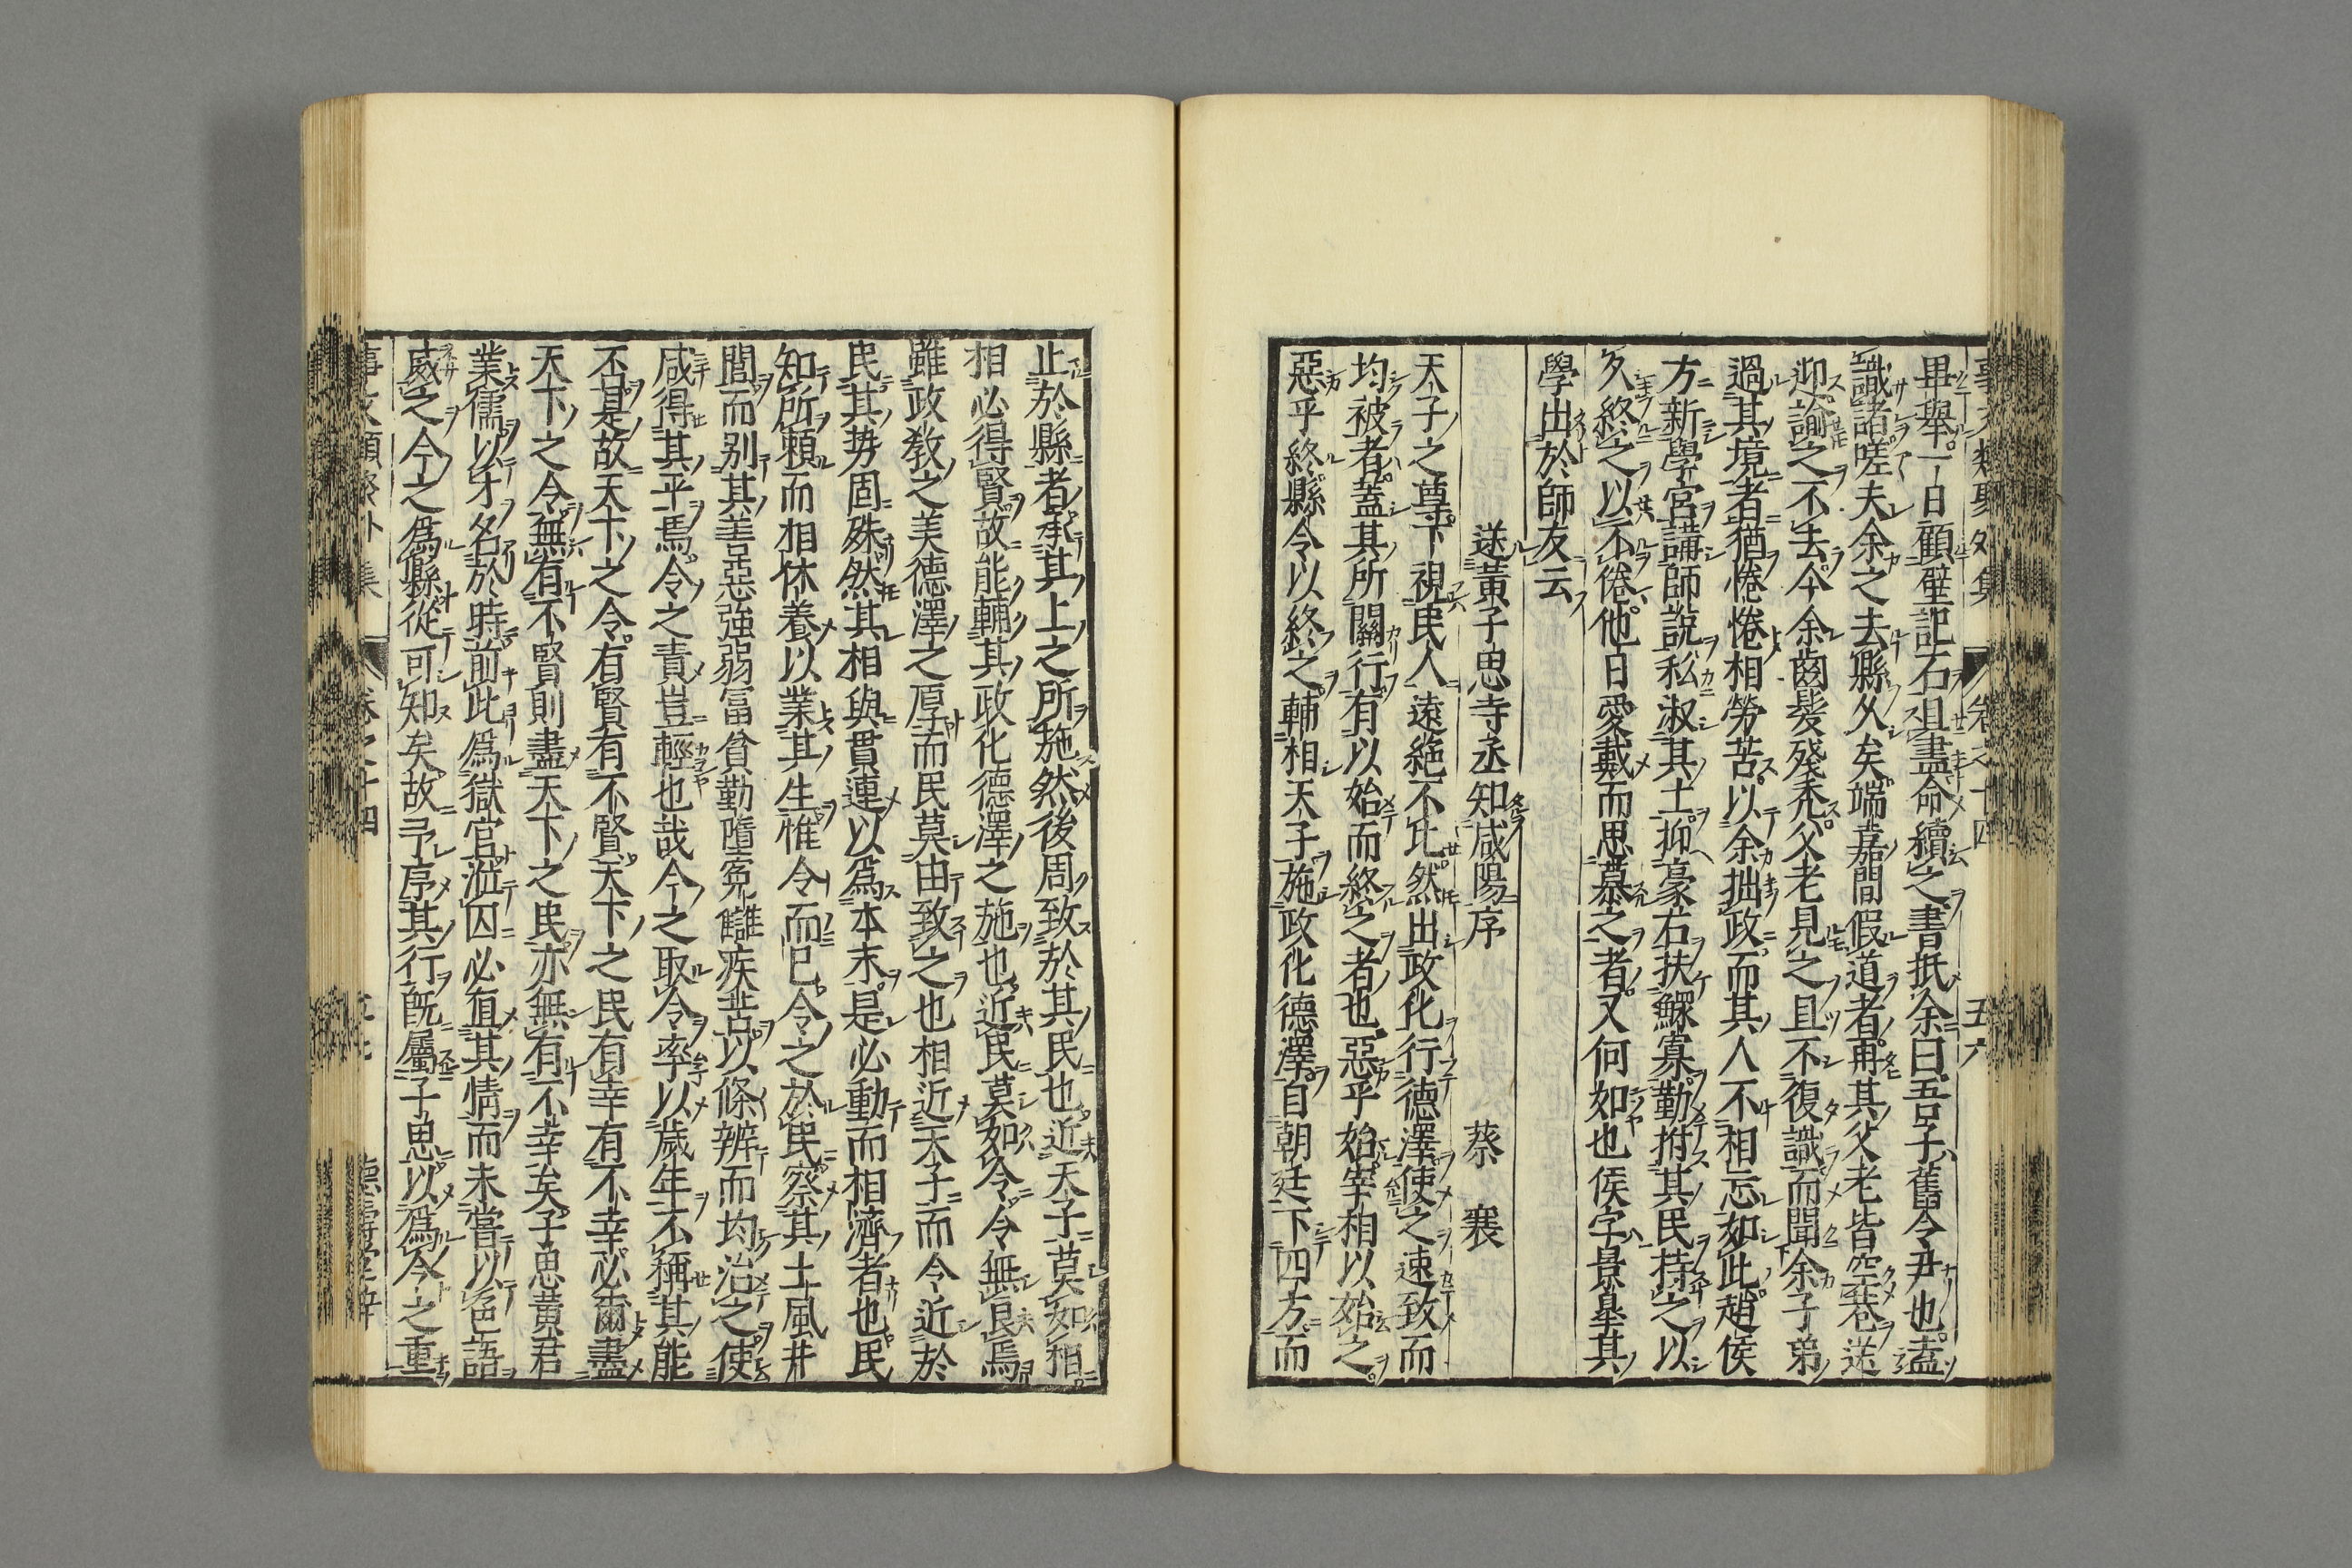 畢舉一日顧壁記石且盡命續之書抵余曰吾子舊令尹也盍
識諸嗟夫余之去縣久矣端嘉間假道者再其父老皆空巷送
迎諭之不去今余齒髮殘禿父老見之且不復識而聞余子弟
過其境者猶惓惓相勞苦以余拙政而其人不相忘如此趙侯
方新學宮講師說私淑其士抑豪右扶鰥寡勤拊其民持之以
久終之以不倦他日愛戴而思慕之者又何如也侯字景皐其
學出於師友云
送黃子思寺丞知咸陽序　蔡　襄
天子之尊下視民人遠絶不比然出政化行德澤使之速致而
均被者蓋其所關行有以始而終之者也惡乎始宰相以始之
惡乎終縣令以終之輔相天子施政化德澤自朝廷下四方而
止於縣者承其上之所施然後周致於其民也近天子莫如相
相必得賢故能輔其政化德澤之施也近民莫如令令無良焉
雖政教之美德澤之厚而民莫由致之也相近天子而令近於
民其勢固殊然其相與貫連以爲本末是必動而相濟者也民
知所賴而相休養以業其生惟令而已令之於民察其土風井
閭而別其善惡強弱冨貧勤墮寃讎疾苦以條辨而均治之使
咸得其平焉令之責豈輕也哉今之取令率以歲年不稱其能
不是故天下之令有賢有不賢天下之民有幸有不幸必爾盡
天下之令無有不賢則盡天下之民亦無有不幸矣子思黃君
業儒以才名於時前此爲獄官涖囚必直其情而未嘗以色語
威之今之爲縣從可知矣故予序其行旣屬子思以爲令之重